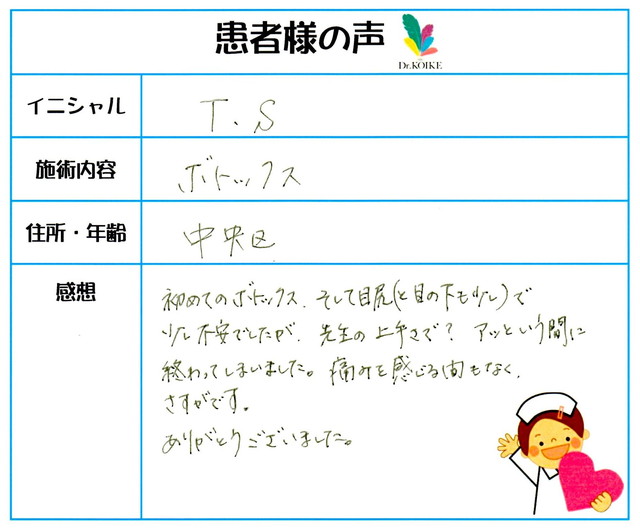 患者様の声
Dr.KOIKE
イニシャル
T.S
施術内容
ボトックス
住所・年齢
中央区
感想
初めてのボトックス、そして目尻(と目の下も少し)で
少し不安でしたが、先生の上手さで?アッという間に
終わってしまいました。痛みを感じる間もなく、
さすがです。
ありがとうございました。